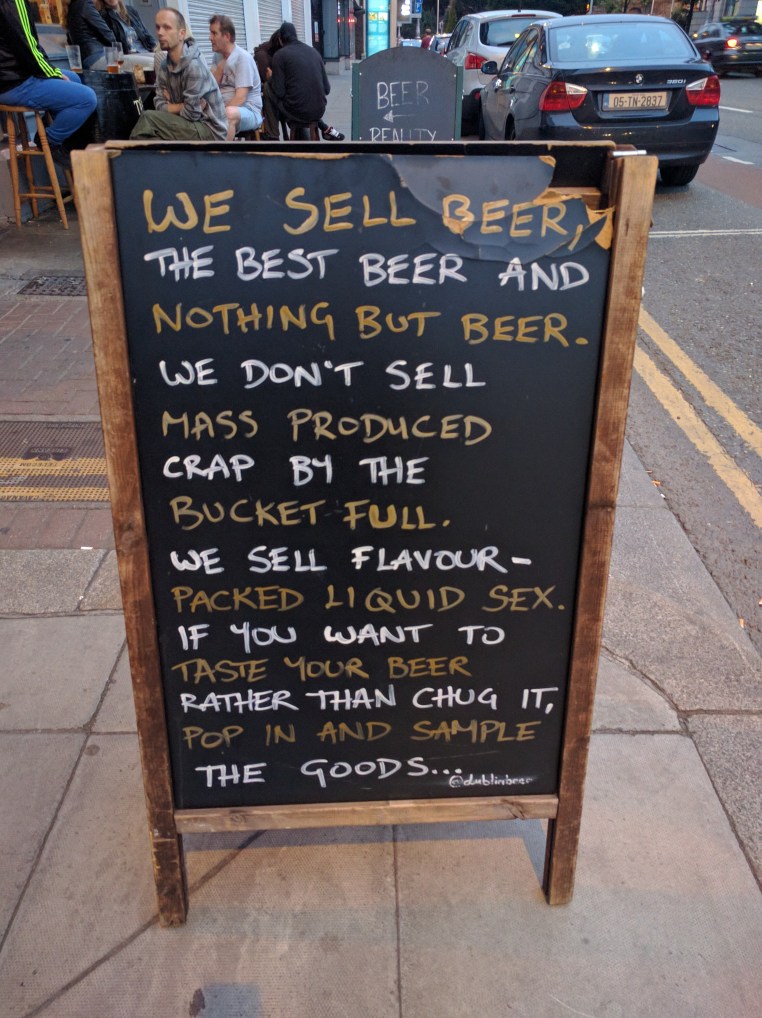 BEER
REALITY
320i
05-TN-2837
WE SELL BEER,
THE BEST BEER AND
NOTHING BUT BEER.
WE DON'T SELL
MASS PRODUCED
CRAP BY THE
BUCKET FULL.
WE SELL FLAVOUR-
PACKED LIQUID SEX.
IF YOU WANT TO
TASTE YOUR BEER
RATHER THAN CHUG IT,
POP IN AND SAMPLE
THE GOODS...
@dublinbeer